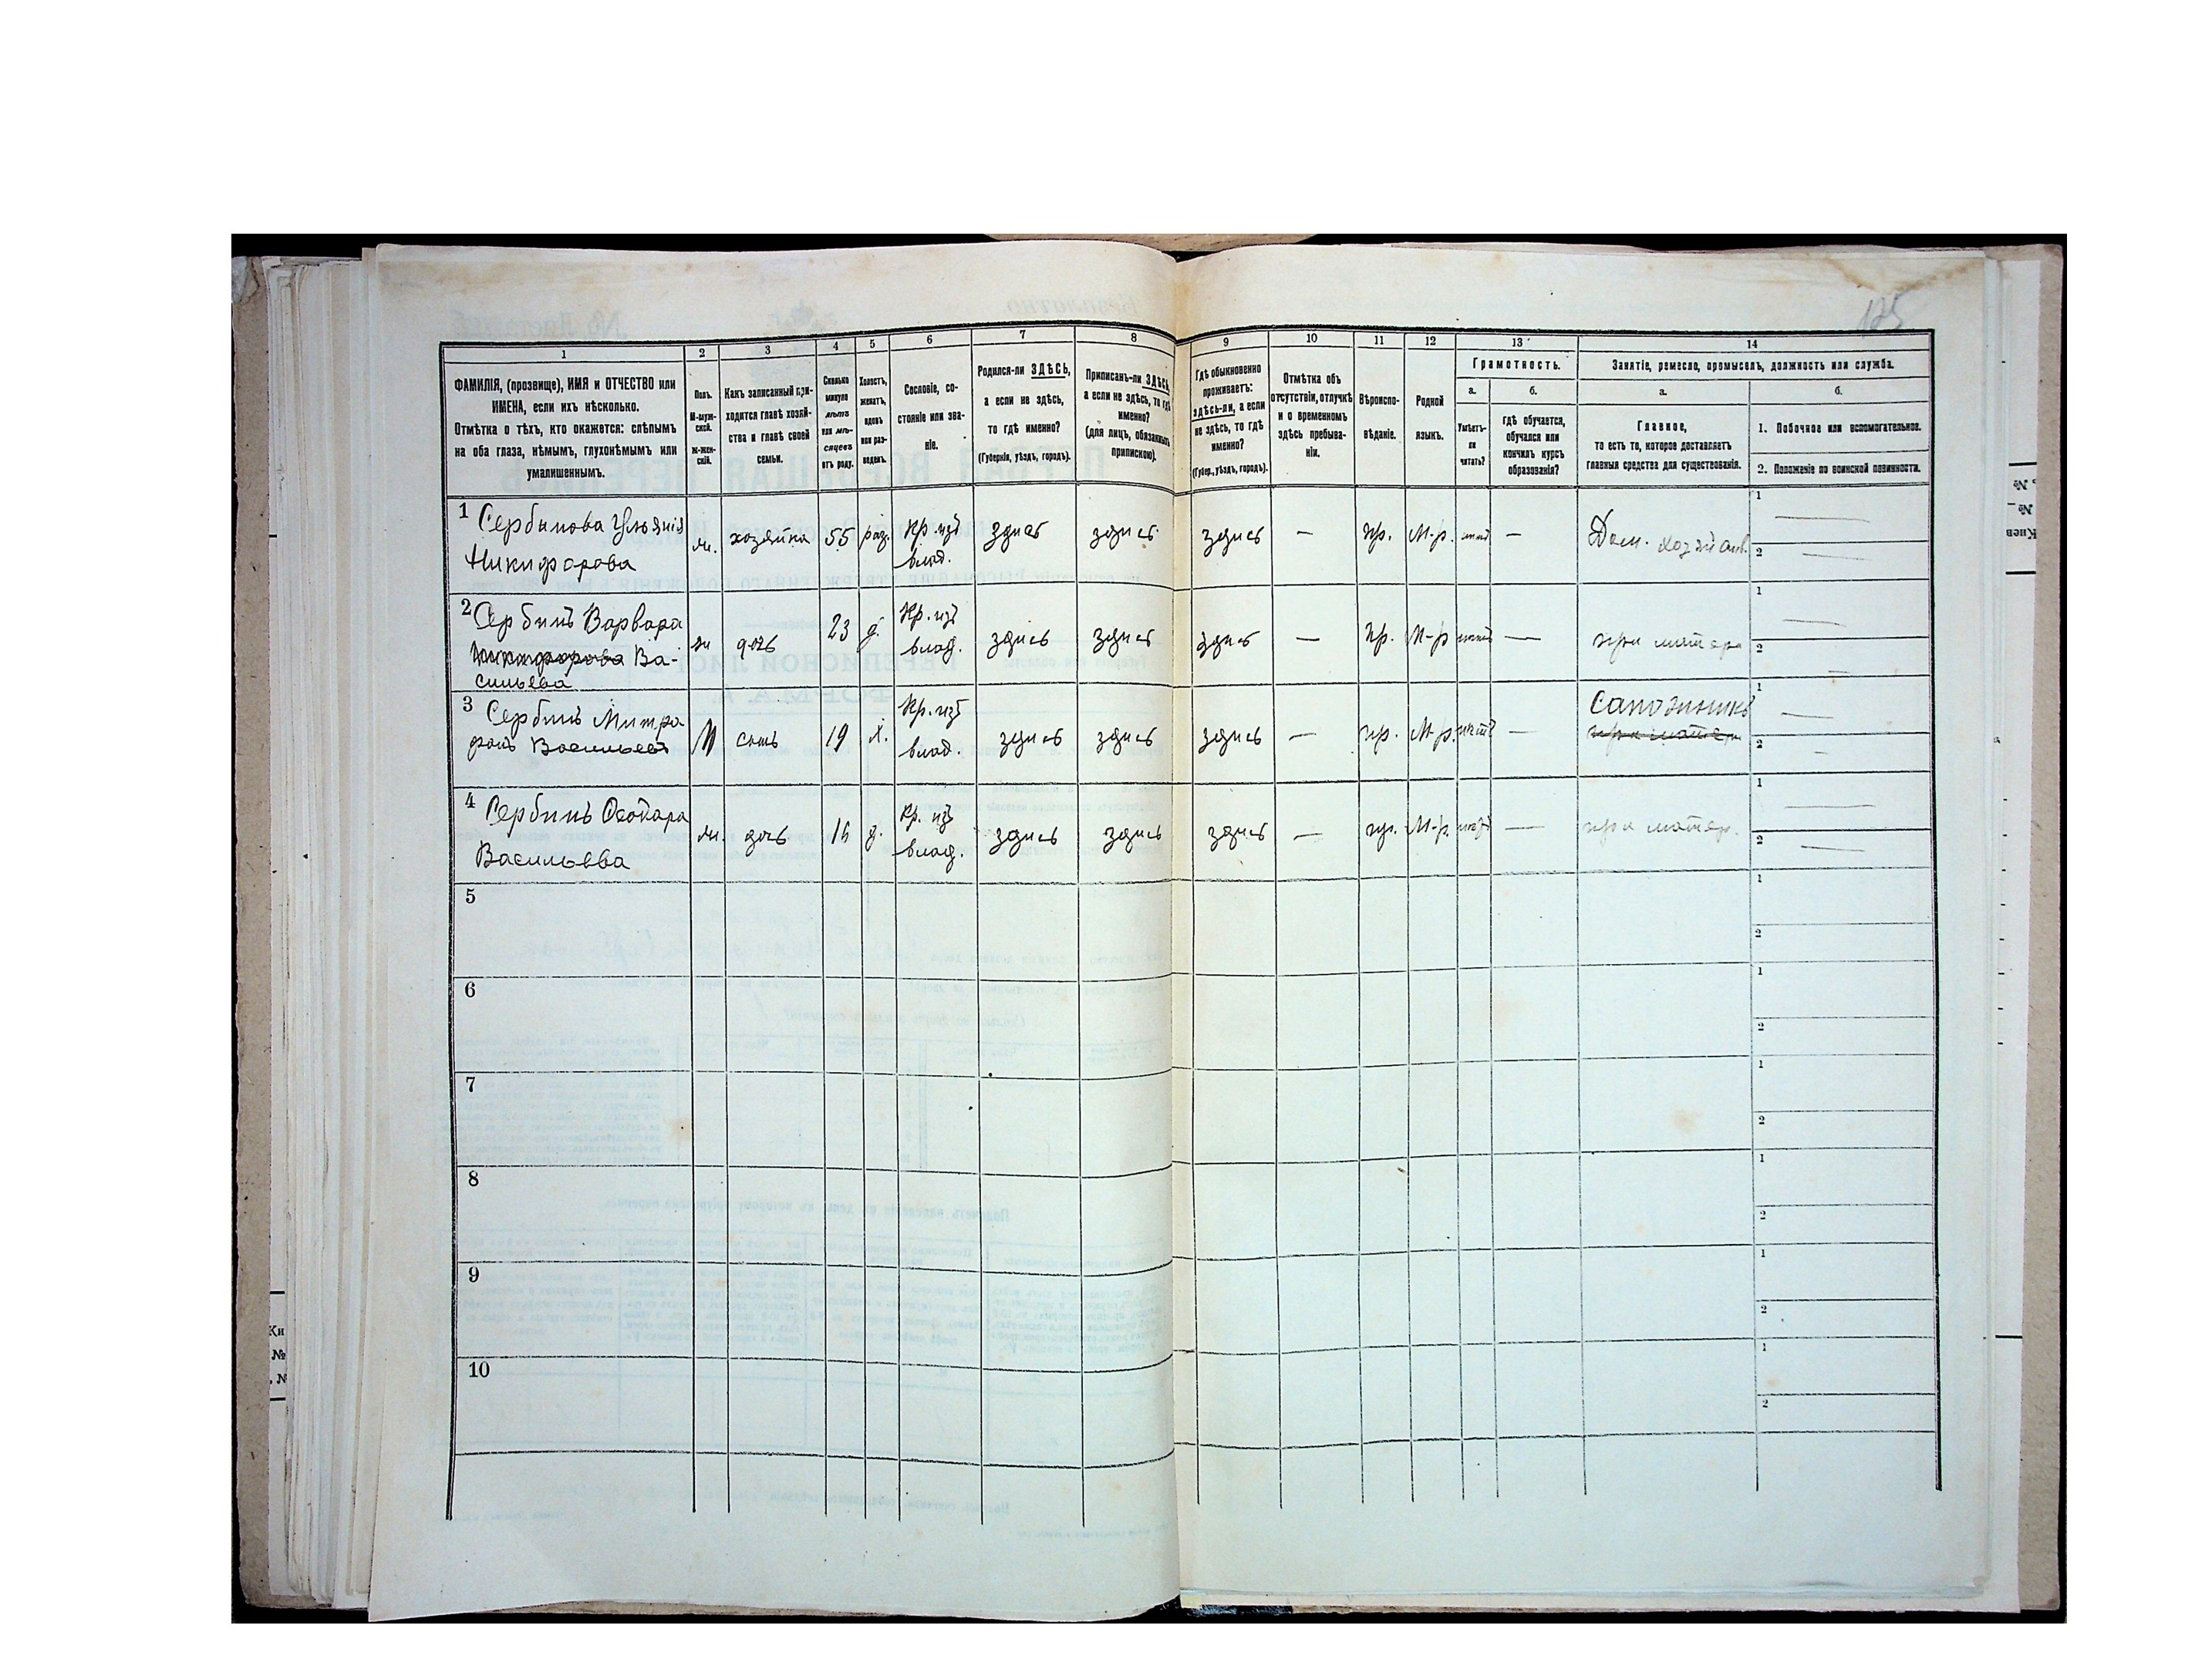 125
1
2
3
4
5
6
7
8
9
10
11
12
13
14
ФАМИЛІЯ, (прозвище), ИМЯ и ОТЧЕСТВО или
ИМЕНА, если ихъ нѣсколько.
Отмѣтка о тѣхъ, кто окажется: слѣпымъ
на оба глаза, нѣмымъ, глухонѣмымъ или
умалишеннымъ.
Полъ.
М-муж-
ской.
ж-жен-
скій.
Какъ записанный при-
ходится главѣ хозяй-
ства и главѣ своей
семьи.
Сколько
минуло
лѣтъ
или мѣ-
сяцевъ
отъ роду.
Холостъ,
женатъ,
вдовъ
или раз-
веденъ.
Сословіе, со-
стояніе или зва-
ніе.
Родился-ли ЗДѢСЬ,
а если не здѣсь,
то гдѣ именно?
(Губернія, уѣздъ, городъ).
Приписанъ-ли ЗДѢСЬ,
а если не здѣсь, то гдѣ
именно?
(для лицъ, обязанныхъ
припискою).
Гдѣ обыкновенно
проживаетъ:
здѣсь-ли, а если
не здѣсь, то гдѣ
именно?
(Губер., уѣздъ, городъ).
Отмѣтка объ
отсутствіи, отлучкѣ
и о временномъ
здѣсь пребыва-
ніи.
Вѣроиспо-
вѣданіе.
Родной
языкъ.
Грамотность.
а.
б.
Умѣетъ-
ли
читать?
гдѣ обучается,
обучался или
кончилъ курсъ
образованія?
Занятіе, ремесло, промыселъ, должность или служба.
а.
б.
Главное,
то есть то, которое доставляетъ
главныя средства для существованія.
1. Побочное или вспомогательное.
2. Положеніе по воинской повинности.
1 Сербинова Ульянія
Никифорова
ж. хозяйка 55 раз. Кр. изъ
влад.
здись здись здись — пр. М-р. —
Дом. хозяйств.
1
2
2 Сербинъ Варвара
Никифорова Ва-
сильева
ж дочь 23 д. Кр. изъ
влад.
здись здись здись — пр. М-р —
при матери
1
2
3 Сербинъ Митро
фанъ Васильевъ
М сынъ 19 х. Кр. изъ
влад.
здись здись здись — пр. М-р. —
Сапожникъ
при матери
1
2
4 Сербинъ Ѳеодора
Васильева
ж. дочь 16 д. Кр. изъ
влад.
здись здись здись — пр. М-р. —
при матер.
1
2
5
1
2
6
1
2
7
1
2
8
1
2
9
1
2
10
1
2
Кн
№
№
№
№
Киев